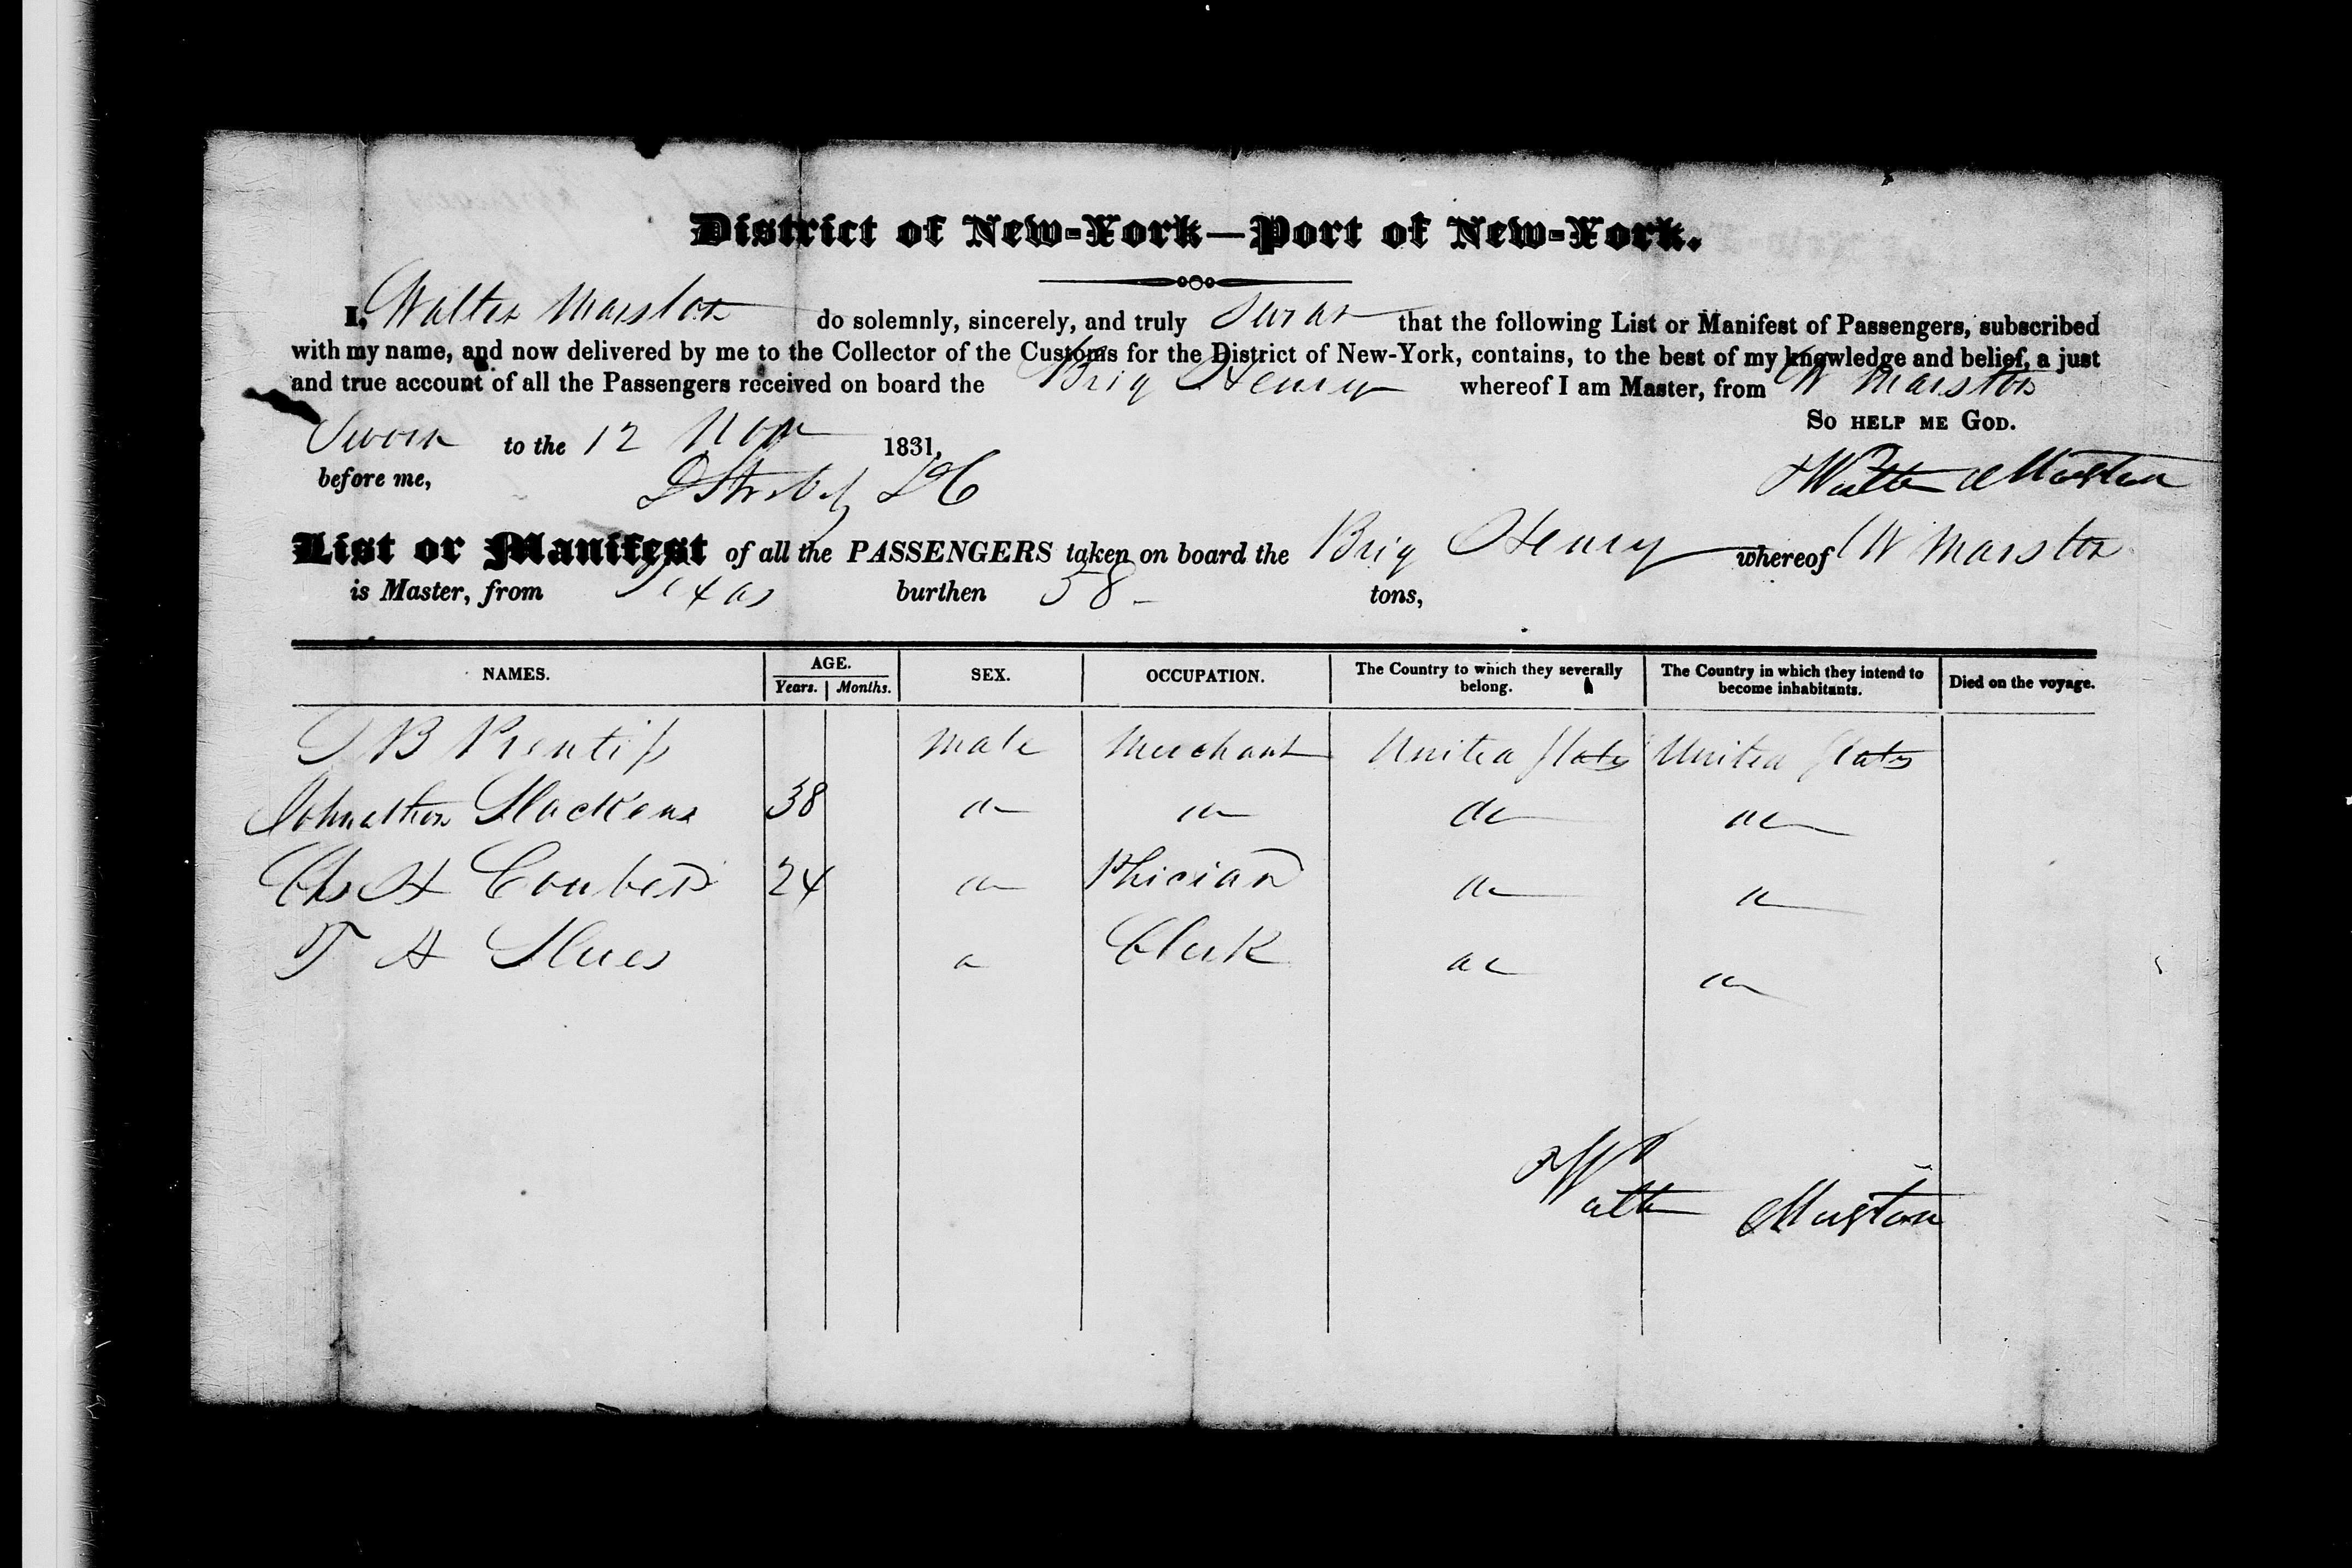 District of New-York—Port of New-York.
I, Walter Marston do solemnly, sincerely, and truly Swear that the following List or Manifest of Passengers, subscribed
with my name, and now delivered by me to the Collector of the Customs for the District of New-York, contains, to the best of my knowledge and belief, a just
and true account of all the Passengers received on board the Brig Henry whereof I am Master, from W Marston
So help me God.
Sworn to the 12 Nov 1831,
before me,
Walter Marston
List or Manifest of all the PASSENGERS taken on board the Brig Henry whereof W Marston
is Master, from Texas burthen 58 tons,
NAMES. AGE. Years. Months. SEX. OCCUPATION. The Country to which they severally belong. The Country in which they intend to become inhabitants. Died on the voyage.
B Prentiss male Merchant United States United States
Johnathon 38 do do do do
Chs H 24 do Phician do do
T H do Clerk do do
Walter Marston